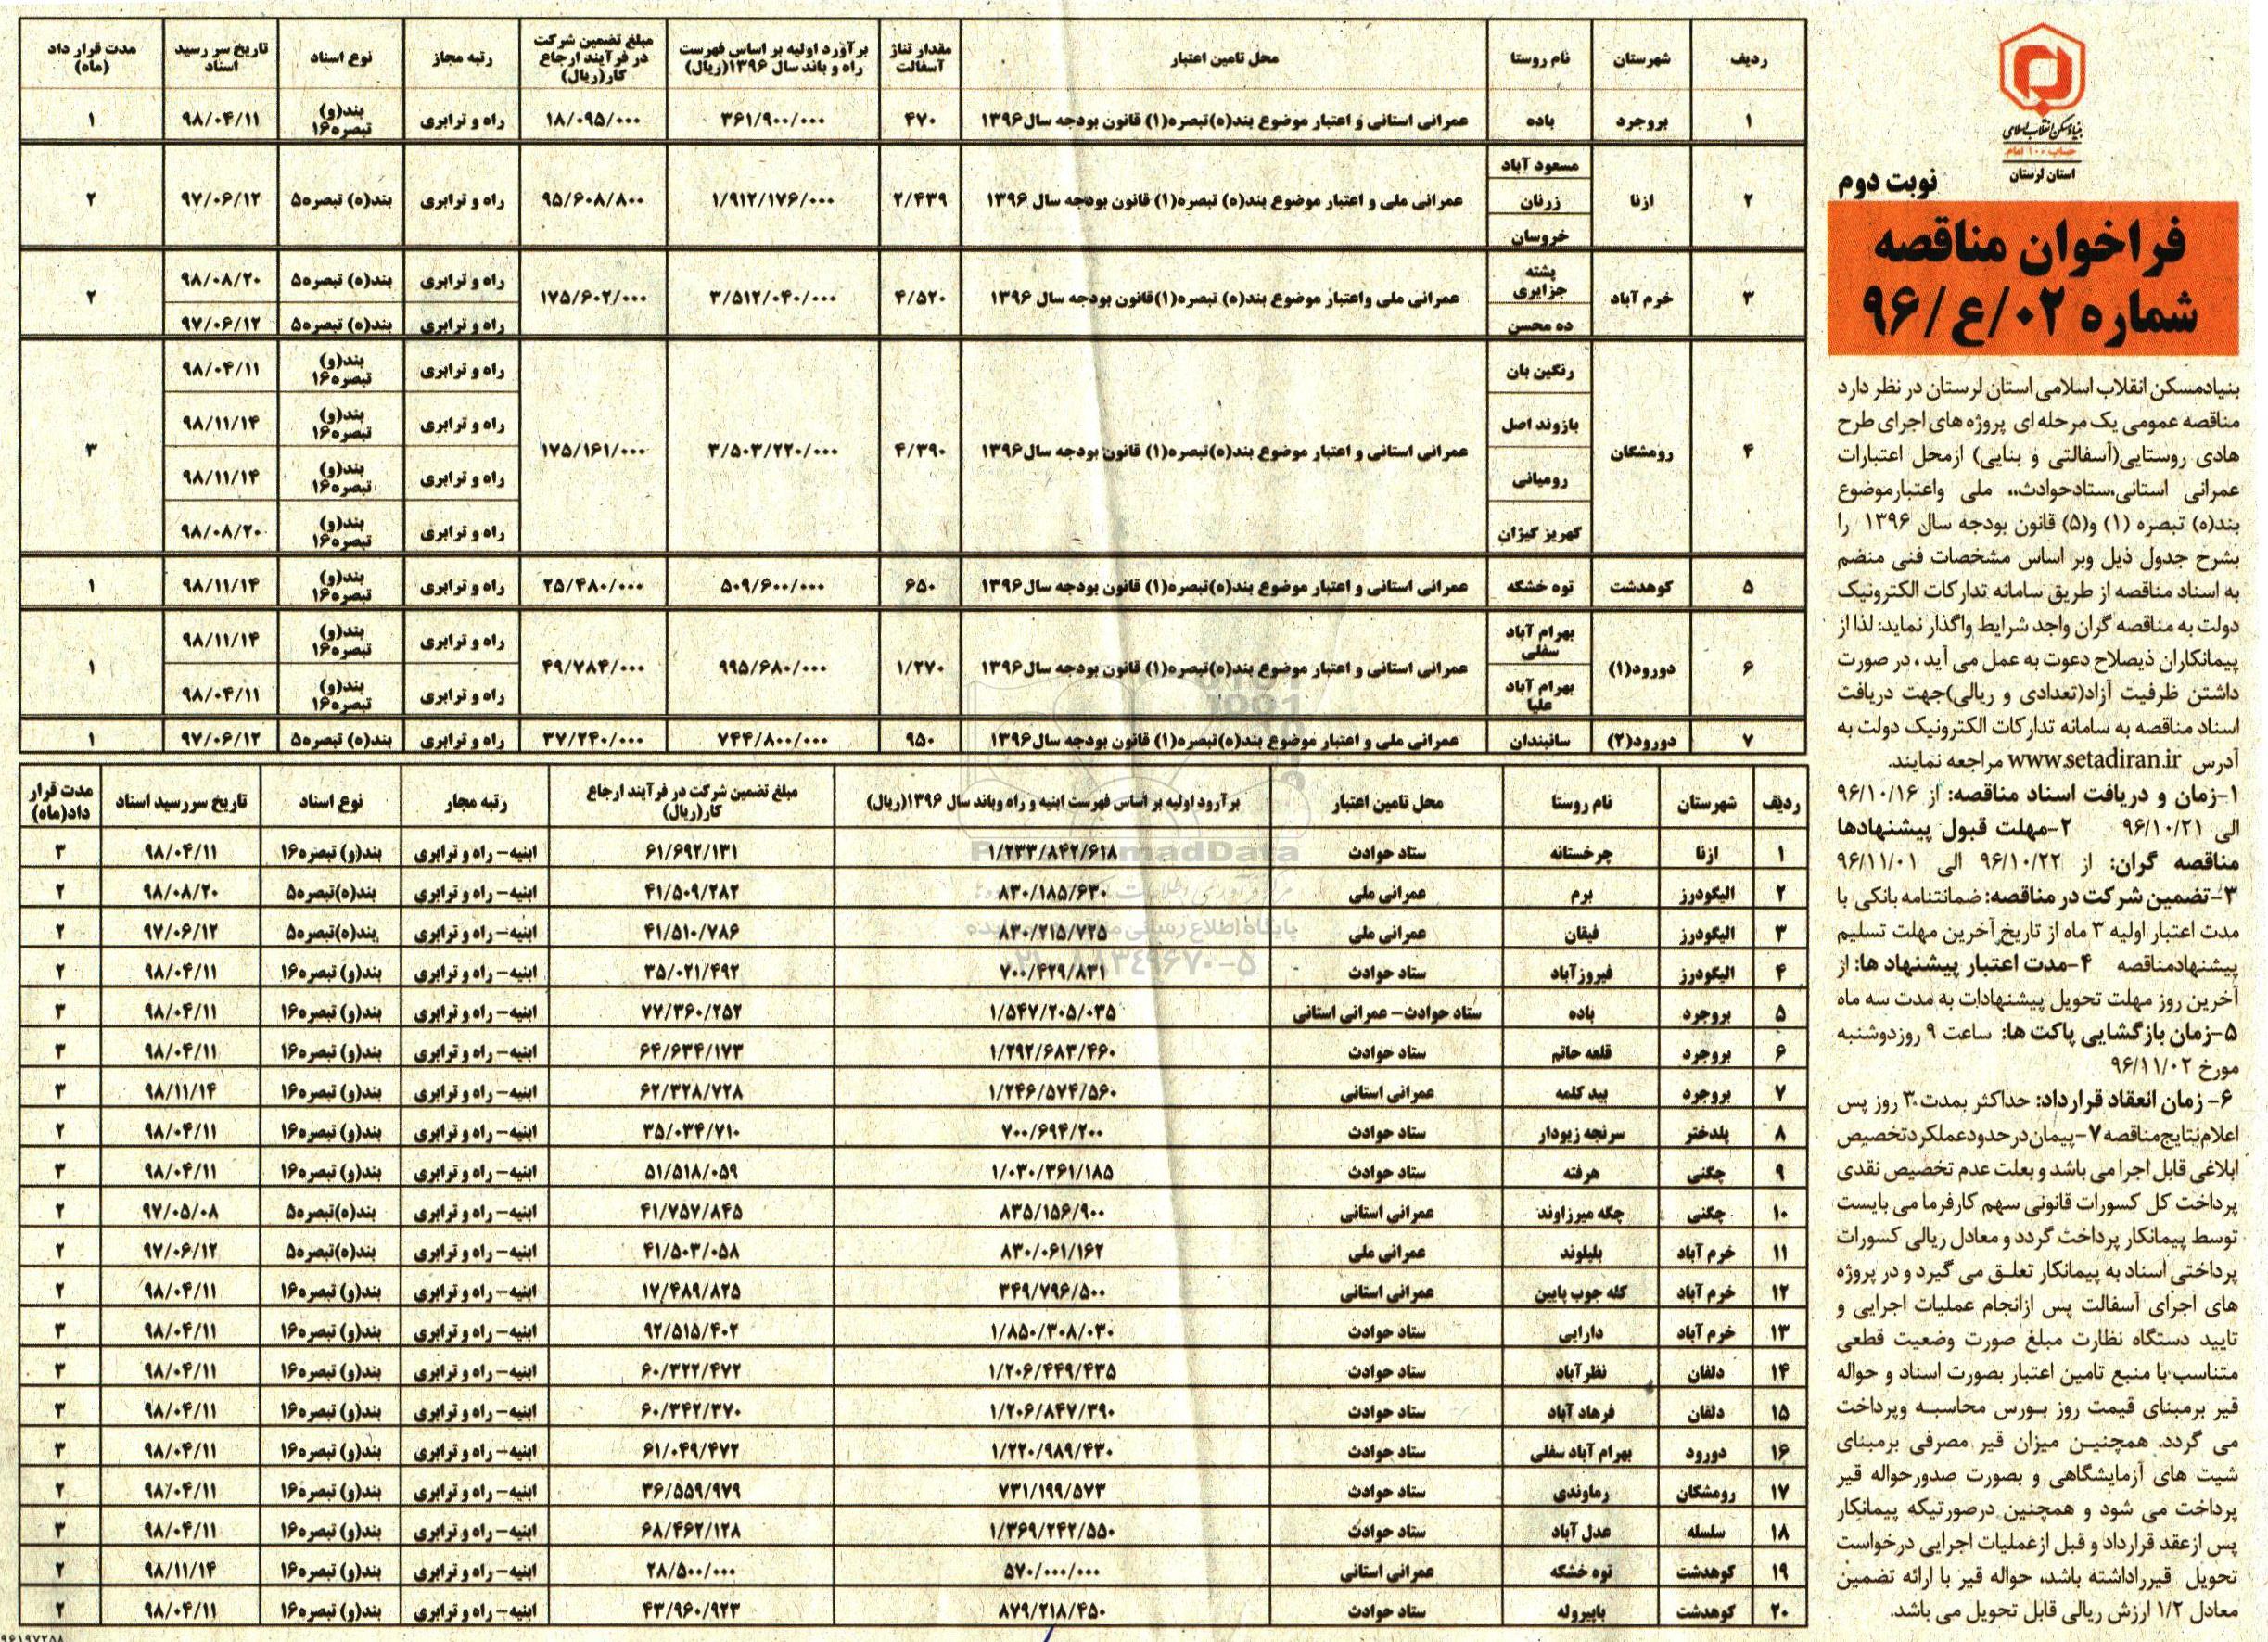 بنیاد مسکن انقلاب اسلامی
حساب ۱۰۰ امام
استان لرستان
نوبت دوم
فراخوان مناقصه
شماره ۰۲/ع/۹۶
بنیادمسکن انقلاب اسلامی استان لرستان در نظر دارد
مناقصه عمومی یک مرحله ای پروژه های اجرای طرح
هادی روستایی(آسفالتی و بنایی) ازمحل اعتبارات
عمرانی استانی،ستادحوادث،، ملی واعتبارموضوع
بند(ه) تبصره (۱) و(۵) قانون بودجه سال ۱۳۹۶ را
بشرح جدول ذیل وبر اساس مشخصات فنی منضم
به اسناد مناقصه از طریق سامانه تدارکات الکترونیک
دولت به مناقصه گران واجد شرایط واگذار نماید: لذا از
پیمانکاران ذیصلاح دعوت به عمل می آید ، در صورت
داشتن ظرفیت آزاد(تعدادی و ریالی)جهت دریافت
اسناد مناقصه به سامانه تدارکات الکترونیک دولت به
آدرس www.setadiran.ir مراجعه نمایند.
۱-زمان و دریافت اسناد مناقصه: از ۹۶/۱۰/۱۶
الی ۹۶/۱۰/۲۱ ۲-مهلت قبول پیشنهادها
مناقصه گران: از ۹۶/۱۰/۲۲ الی ۹۶/۱۱/۰۱
۳-تضمین شرکت در مناقصه: ضمانتنامه بانکی با
مدت اعتبار اولیه ۳ ماه از تاریخ آخرین مهلت تسلیم
پیشنهادمناقصه ۴-مدت اعتبار پیشنهاد ها: از
آخرین روز مهلت تحویل پیشنهادات به مدت سه ماه
۵-زمان بازگشایی پاکت ها: ساعت ۹ روزدوشنبه
مورخ ۹۶/۱۱/۰۲
۶- زمان انعقاد قرارداد: حداکثر بمدت ۳۰ روز پس
اعلام نتایج مناقصه ۷-پیمان در حدود عملکرد تخصیص
ابلاغی قابل اجرا می باشد و بعلت عدم تخصیص نقدی
پرداخت کل کسورات قانونی سهم کارفرما می بایست
توسط پیمانکار پرداخت گردد و معادل ریالی کسورات
پرداختی اسناد به پیمانکار تعلق می گیرد و در پروژه
های اجرای آسفالت پس ازانجام عملیات اجرایی و
تایید دستگاه نظارت مبلغ صورت وضعیت قطعی
متناسب با منبع تامین اعتبار بصورت اسناد و حواله
قیر برمبنای قیمت روز بورس محاسبه وپرداخت
می گردد. همچنین میزان قیر مصرفی برمبنای
شیت های آزمایشگاهی و بصورت صدورحواله قیر
پرداخت می شود و همچنین درصورتیکه پیمانکار
پس ازعقد قرارداد و قبل ازعملیات اجرایی درخواست
تحویل قیرراداشته باشد، حواله قیر با ارائه تضمین
معادل ۱/۲ ارزش ریالی قابل تحویل می باشد.
ردیف شهرستان نام روستا محل تامین اعتبار مقدار تناژ آسفالت برآورد اولیه بر اساس فهرست راه و باند سال ۱۳۹۶(ریال) مبلغ تضمین شرکت در فرآیند ارجاع کار(ریال) رتبه مجاز نوع اسناد تاریخ سر رسید اسناد مدت قرار داد (ماه)
۱ بروجرد باده عمرانی استانی و اعتبار موضوع بند(ه)تبصره(۱) قانون بودجه سال۱۳۹۶ ۴۷۰ ۳۶۱/۹۰۰/۰۰۰ ۱۸/۰۹۵/۰۰۰ راه و ترابری بند(و) تبصره۱۶ ۹۸/۰۴/۱۱ ۱
۲ ازنا مسعود آباد عمرانی ملی و اعتبار موضوع بند(ه) تبصره(۱) قانون بودجه سال ۱۳۹۶ ۲/۴۳۹ ۱/۹۱۲/۱۷۶/۰۰۰ ۹۵/۶۰۸/۸۰۰ راه و ترابری بند(ه) تبصره۵ ۹۷/۰۶/۱۲ ۲
زرنان
خروسان
۳ خرم آباد پشته جزایری عمرانی ملی واعتبار موضوع بند(ه) تبصره(۱)قانون بودجه سال ۱۳۹۶ ۴/۵۲۰ ۳/۵۱۲/۰۴۰/۰۰۰ ۱۷۵/۶۰۲/۰۰۰ راه و ترابری بند(ه) تبصره۵ ۹۸/۰۸/۲۰ ۲
ده محسن راه و ترابری بند(ه) تبصره۵ ۹۷/۰۶/۱۲
۴ رومشگان رنگین بان عمرانی استانی و اعتبار موضوع بند(ه)تبصره(۱) قانون بودجه سال۱۳۹۶ ۴/۳۹۰ ۳/۵۰۳/۲۲۰/۰۰۰ ۱۷۵/۱۶۱/۰۰۰ راه و ترابری بند(و) تبصره۱۶ ۹۸/۰۴/۱۱ ۳
بازوند اصل راه و ترابری بند(و) تبصره۱۶ ۹۸/۱۱/۱۴
رومیانی راه و ترابری بند(و) تبصره۱۶ ۹۸/۱۱/۱۴
کهریز کیژان راه و ترابری بند(و) تبصره۱۶ ۹۸/۰۸/۲۰
۵ کوهدشت توه خشکه عمرانی استانی و اعتبار موضوع بند(ه)تبصره(۱) قانون بودجه سال۱۳۹۶ ۶۵۰ ۵۰۹/۶۰۰/۰۰۰ ۲۵/۴۸۰/۰۰۰ راه و ترابری بند(و) تبصره۱۶ ۹۸/۱۱/۱۴ ۱
۶ دورود(۱) بهرام آباد سفلی عمرانی استانی و اعتبار موضوع بند(ه)تبصره(۱) قانون بودجه سال۱۳۹۶ ۱/۲۷۰ ۹۹۵/۶۸۰/۰۰۰ ۴۹/۷۸۴/۰۰۰ راه و ترابری بند(و) تبصره۱۶ ۹۸/۱۱/۱۴ ۱
بهرام آباد علیا راه و ترابری بند(و) تبصره۱۶ ۹۸/۰۴/۱۱
۷ دورود(۲) سانبندان عمرانی ملی و اعتبار موضوع بند(ه)تبصره(۱) قانون بودجه سال۱۳۹۶ ۹۵۰ ۷۴۴/۸۰۰/۰۰۰ ۳۷/۲۴۰/۰۰۰ راه و ترابری بند(ه) تبصره۵ ۹۷/۰۶/۱۲ ۱
ردیف شهرستان نام روستا محل تامین اعتبار برآورد اولیه بر اساس فهرست ابنیه و راه وباند سال ۱۳۹۶(ریال) مبلغ تضمین شرکت در فرآیند ارجاع کار(ریال) رتبه مجاز نوع اسناد تاریخ سررسید اسناد مدت قرار داد(ماه)
۱ ازنا چرخستانه ستاد حوادث ۱/۲۳۳/۸۴۲/۶۱۸ ۶۱/۶۹۲/۱۳۱ ابنیه- راه و ترابری بند(و) تبصره۱۶ ۹۸/۰۴/۱۱ ۳
۲ الیگودرز برم عمرانی ملی ۸۳۰/۱۸۵/۶۳۰ ۴۱/۵۰۹/۲۸۲ ابنیه- راه و ترابری بند(ه)تبصره۵ ۹۸/۰۸/۲۰ ۲
۳ الیگودرز فیقان عمرانی ملی ۸۳۰/۲۱۵/۷۲۵ ۴۱/۵۱۰/۷۸۶ ابنیه- راه و ترابری بند(ه)تبصره۵ ۹۷/۰۶/۱۲ ۲
۴ الیگودرز فیروزآباد ستاد حوادث ۷۰۰/۴۲۹/۸۳۱ ۳۵/۰۲۱/۴۹۲ ابنیه- راه و ترابری بند(و) تبصره۱۶ ۹۸/۰۴/۱۱ ۲
۵ بروجرد باده ستاد حوادث- عمرانی استانی ۱/۵۴۷/۲۰۵/۰۳۵ ۷۷/۳۶۰/۲۵۲ ابنیه- راه و ترابری بند(و) تبصره۱۶ ۹۸/۰۴/۱۱ ۳
۶ بروجرد قلعه حاتم ستاد حوادث ۱/۲۹۲/۶۸۳/۴۶۰ ۶۴/۶۳۴/۱۷۳ ابنیه- راه و ترابری بند(و) تبصره۱۶ ۹۸/۰۴/۱۱ ۳
۷ بروجرد بید کلمه عمرانی استانی ۱/۲۴۶/۵۷۴/۵۶۰ ۶۲/۳۲۸/۷۲۸ ابنیه- راه و ترابری بند(و) تبصره۱۶ ۹۸/۱۱/۱۴ ۳
۸ پلدختر سرنجه زیودار ستاد حوادث ۷۰۰/۶۹۴/۲۰۰ ۳۵/۰۳۴/۷۱۰ ابنیه- راه و ترابری بند(و) تبصره۱۶ ۹۸/۰۴/۱۱ ۲
۹ چگنی هرفته ستاد حوادث ۱/۰۳۰/۳۶۱/۱۸۵ ۵۱/۵۱۸/۰۵۹ ابنیه- راه و ترابری بند(و) تبصره۱۶ ۹۸/۰۴/۱۱ ۳
۱۰ چگنی چگه میرزاوند عمرانی استانی ۸۳۵/۱۵۶/۹۰۰ ۴۱/۷۵۷/۸۴۵ ابنیه- راه و ترابری بند(ه)تبصره۵ ۹۷/۰۵/۰۸ ۲
۱۱ خرم آباد بلیلوند عمرانی ملی ۸۳۰/۰۶۱/۱۶۲ ۴۱/۵۰۳/۰۵۸ ابنیه- راه و ترابری بند(ه)تبصره۵ ۹۷/۰۶/۱۲ ۲
۱۲ خرم آباد کله جوب پایین عمرانی استانی ۳۴۹/۷۹۶/۵۰۰ ۱۷/۴۸۹/۸۲۵ ابنیه- راه و ترابری بند(و) تبصره۱۶ ۹۸/۰۴/۱۱ ۲
۱۳ خرم آباد دارایی ستاد حوادث ۱/۸۵۰/۳۰۸/۰۳۰ ۹۲/۵۱۵/۴۰۲ ابنیه- راه و ترابری بند(و) تبصره۱۶ ۹۸/۰۴/۱۱ ۳
۱۴ دلفان نظرآباد ستاد حوادث ۱/۲۰۶/۴۴۹/۴۳۵ ۶۰/۳۲۲/۴۷۲ ابنیه- راه و ترابری بند(و) تبصره۱۶ ۹۸/۰۴/۱۱ ۳
۱۵ دلفان فرهاد آباد ستاد حوادث ۱/۲۰۶/۸۴۷/۳۹۰ ۶۰/۳۴۲/۳۷۰ ابنیه- راه و ترابری بند(و) تبصره۱۶ ۹۸/۰۴/۱۱ ۳
۱۶ دورود بهرام آباد سفلی ستاد حوادث ۱/۲۲۰/۹۸۹/۴۳۰ ۶۱/۰۴۹/۴۷۲ ابنیه- راه و ترابری بند(و) تبصره۱۶ ۹۸/۰۴/۱۱ ۳
۱۷ رومشکان رماوندی ستاد حوادث ۷۳۱/۱۹۹/۵۷۳ ۳۶/۵۵۹/۹۷۹ ابنیه- راه و ترابری بند(و) تبصره۱۶ ۹۸/۰۴/۱۱ ۲
۱۸ سلسله عدل آباد ستاد حوادث ۱/۳۶۹/۲۴۲/۵۵۰ ۶۸/۴۶۲/۱۲۸ ابنیه- راه و ترابری بند(و) تبصره۱۶ ۹۸/۰۴/۱۱ ۳
۱۹ کوهدشت توه خشکه عمرانی استانی ۵۷۰/۰۰۰/۰۰۰ ۲۸/۵۰۰/۰۰۰ ابنیه- راه و ترابری بند(و) تبصره۱۶ ۹۸/۱۱/۱۴ ۲
۲۰ کوهدشت باپیروله ستاد حوادث ۸۷۹/۲۱۸/۴۵۰ ۴۳/۹۶۰/۹۲۳ ابنیه- راه و ترابری بند(و) تبصره۱۶ ۹۸/۰۴/۱۱ ۲